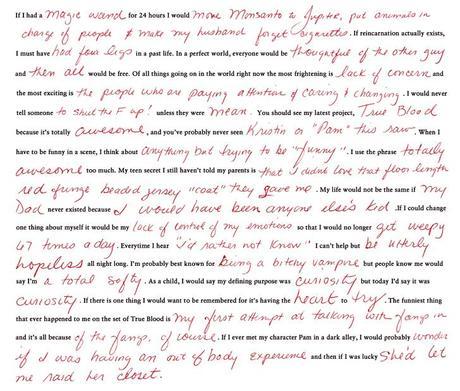 If I had a magic wand for 24 hours I would move Monsanto to Jupiter, put animals in
charge of people & make my husband forget cigarettes. If reincarnation actually exists,
I must have had four legs in a past life. In a perfect world, everyone would be thoughtful of the other guy
and then all would be free. Of all things going on in the world right now the most frightening is lack of concern and
the most exciting is the people who are paying attention & caring & changing. I would never
tell someone to shut the F up! unless they were mean. You should see my latest project, True Blood
because it's totally awesome, and you've probably never seen Kristin or "Pam" this raw. When I
have to be funny in a scene, I think about anything but trying to be "funny". I use the phrase totally
awesome too much. My teen secret I still haven't told my parents is that I didn't love that floor length
red fringe beaded jersey "coat" they gave me. My life would not be the same if my
Dad never existed because I would have been anyone else's kid. If I could change
one thing about myself it would be my lack of control of my emotions so that I would no longer get weepy
67 times a day. Everytime I hear "I'd rather not know" I can't help but be utterly
hopeless all night long. I'm probably best known for being a bitchy vampire but people know me would
say I'm a total softy. As a child, I would say my defining purpose was curiosity but today I'd say it was
curiosity. If there is one thing I would want to be remembered for it's having the heart to try. The funniest thing
that ever happened to me on the set of True Blood is my first attempt at talking with fangs in
and it's all because of the fangs, of course. If I ever met my character Pam in a dark alley, I would probably wonder
if I was having an out of body experience and then if I was lucky She'd let
me raid her closet.